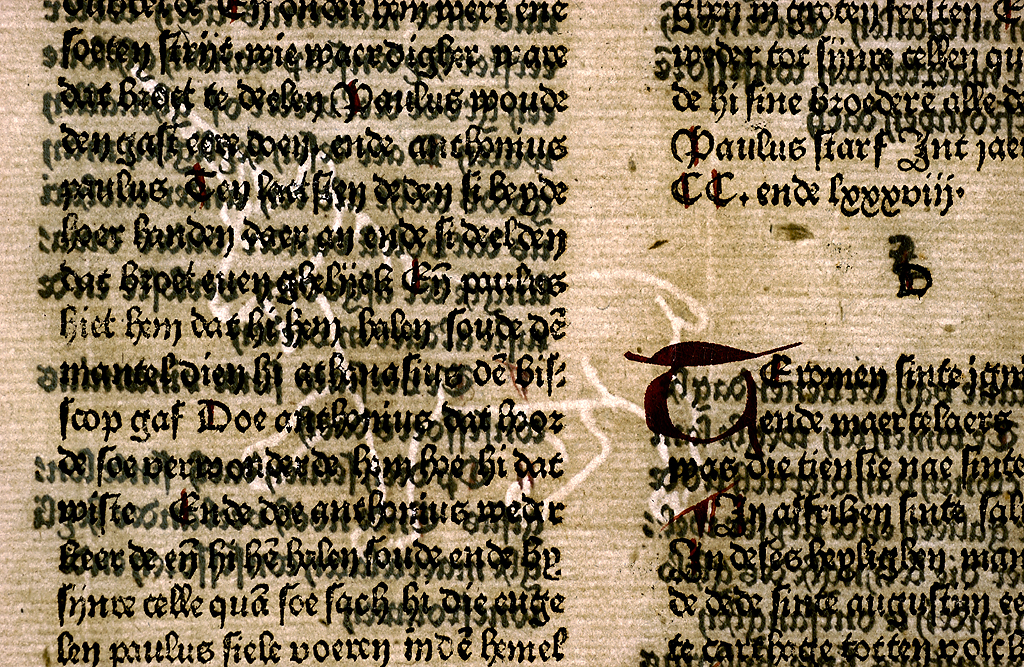 soeten strijt wie waerdigher ware
dat broet te deelen Paulus woude
den gast eren ende anthonius
paulus Ten lactsten deden si beyde
haer handen daer an ende si deeldē
dat broet euen ghelijck Eñ paulus
hiet hem dat hi hem halen soude dē
mantel dien hi athanasius dē bis⸗
scop gaf Doe anthonius dat hoor
de soe verwonderde hem hoe hi dat
wiste Ende doe anthonius weder
keerde eñ hi hē halen soude ende by
sijnre celle quā soe sach hi die enge
len paulus siele voeren in dē hemel
ghen in groten feesten
weder tot sijnre cellen
de hi sine broedere alle
Paulus starf Int jaer
CC. ende lxxxviij.
D
ende maertelaers
was die tienste nae sinte
In affriken sinte
deses heylighen
de dede sinte augustijn
te carthage totten volck